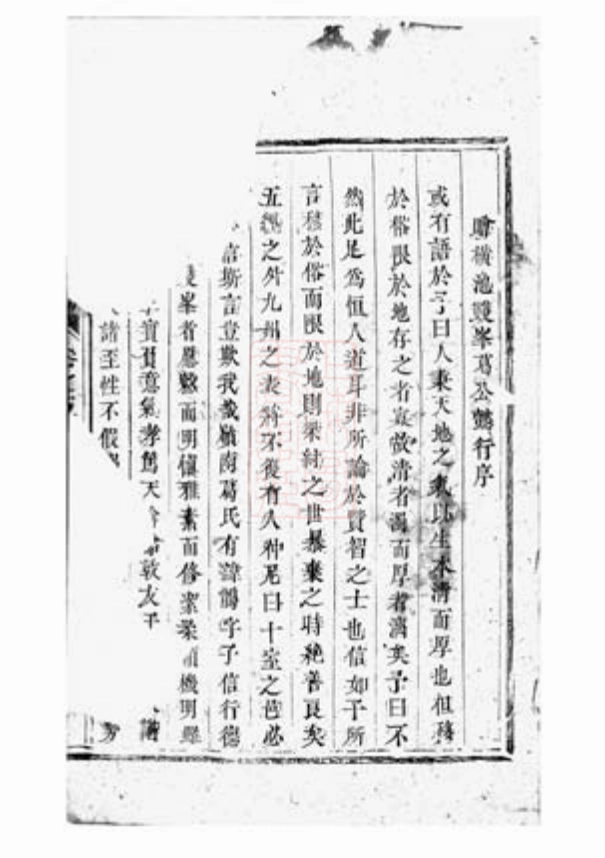 贈橫池雙峯葛公鶴行序
或有語於予曰人秉天地之氣以生本清而厚也但移
於俗限於地存之者寡故清者濁而厚者漓矣予曰不
然此足為恒人道耳非所論於賢智之士也信如子所
言移於俗而限於地則桀紂之世暴棄之時絶善良矣
五經之外九州之表將不復有人仲尼曰十室之邑必
信斯言豈欺我哉嶺南葛氏有諱鶴字子信行德
峯者愿慤而明慎雅素而修潔柔 機明
實質意氣孝篤天 敦友于
諸至性不假